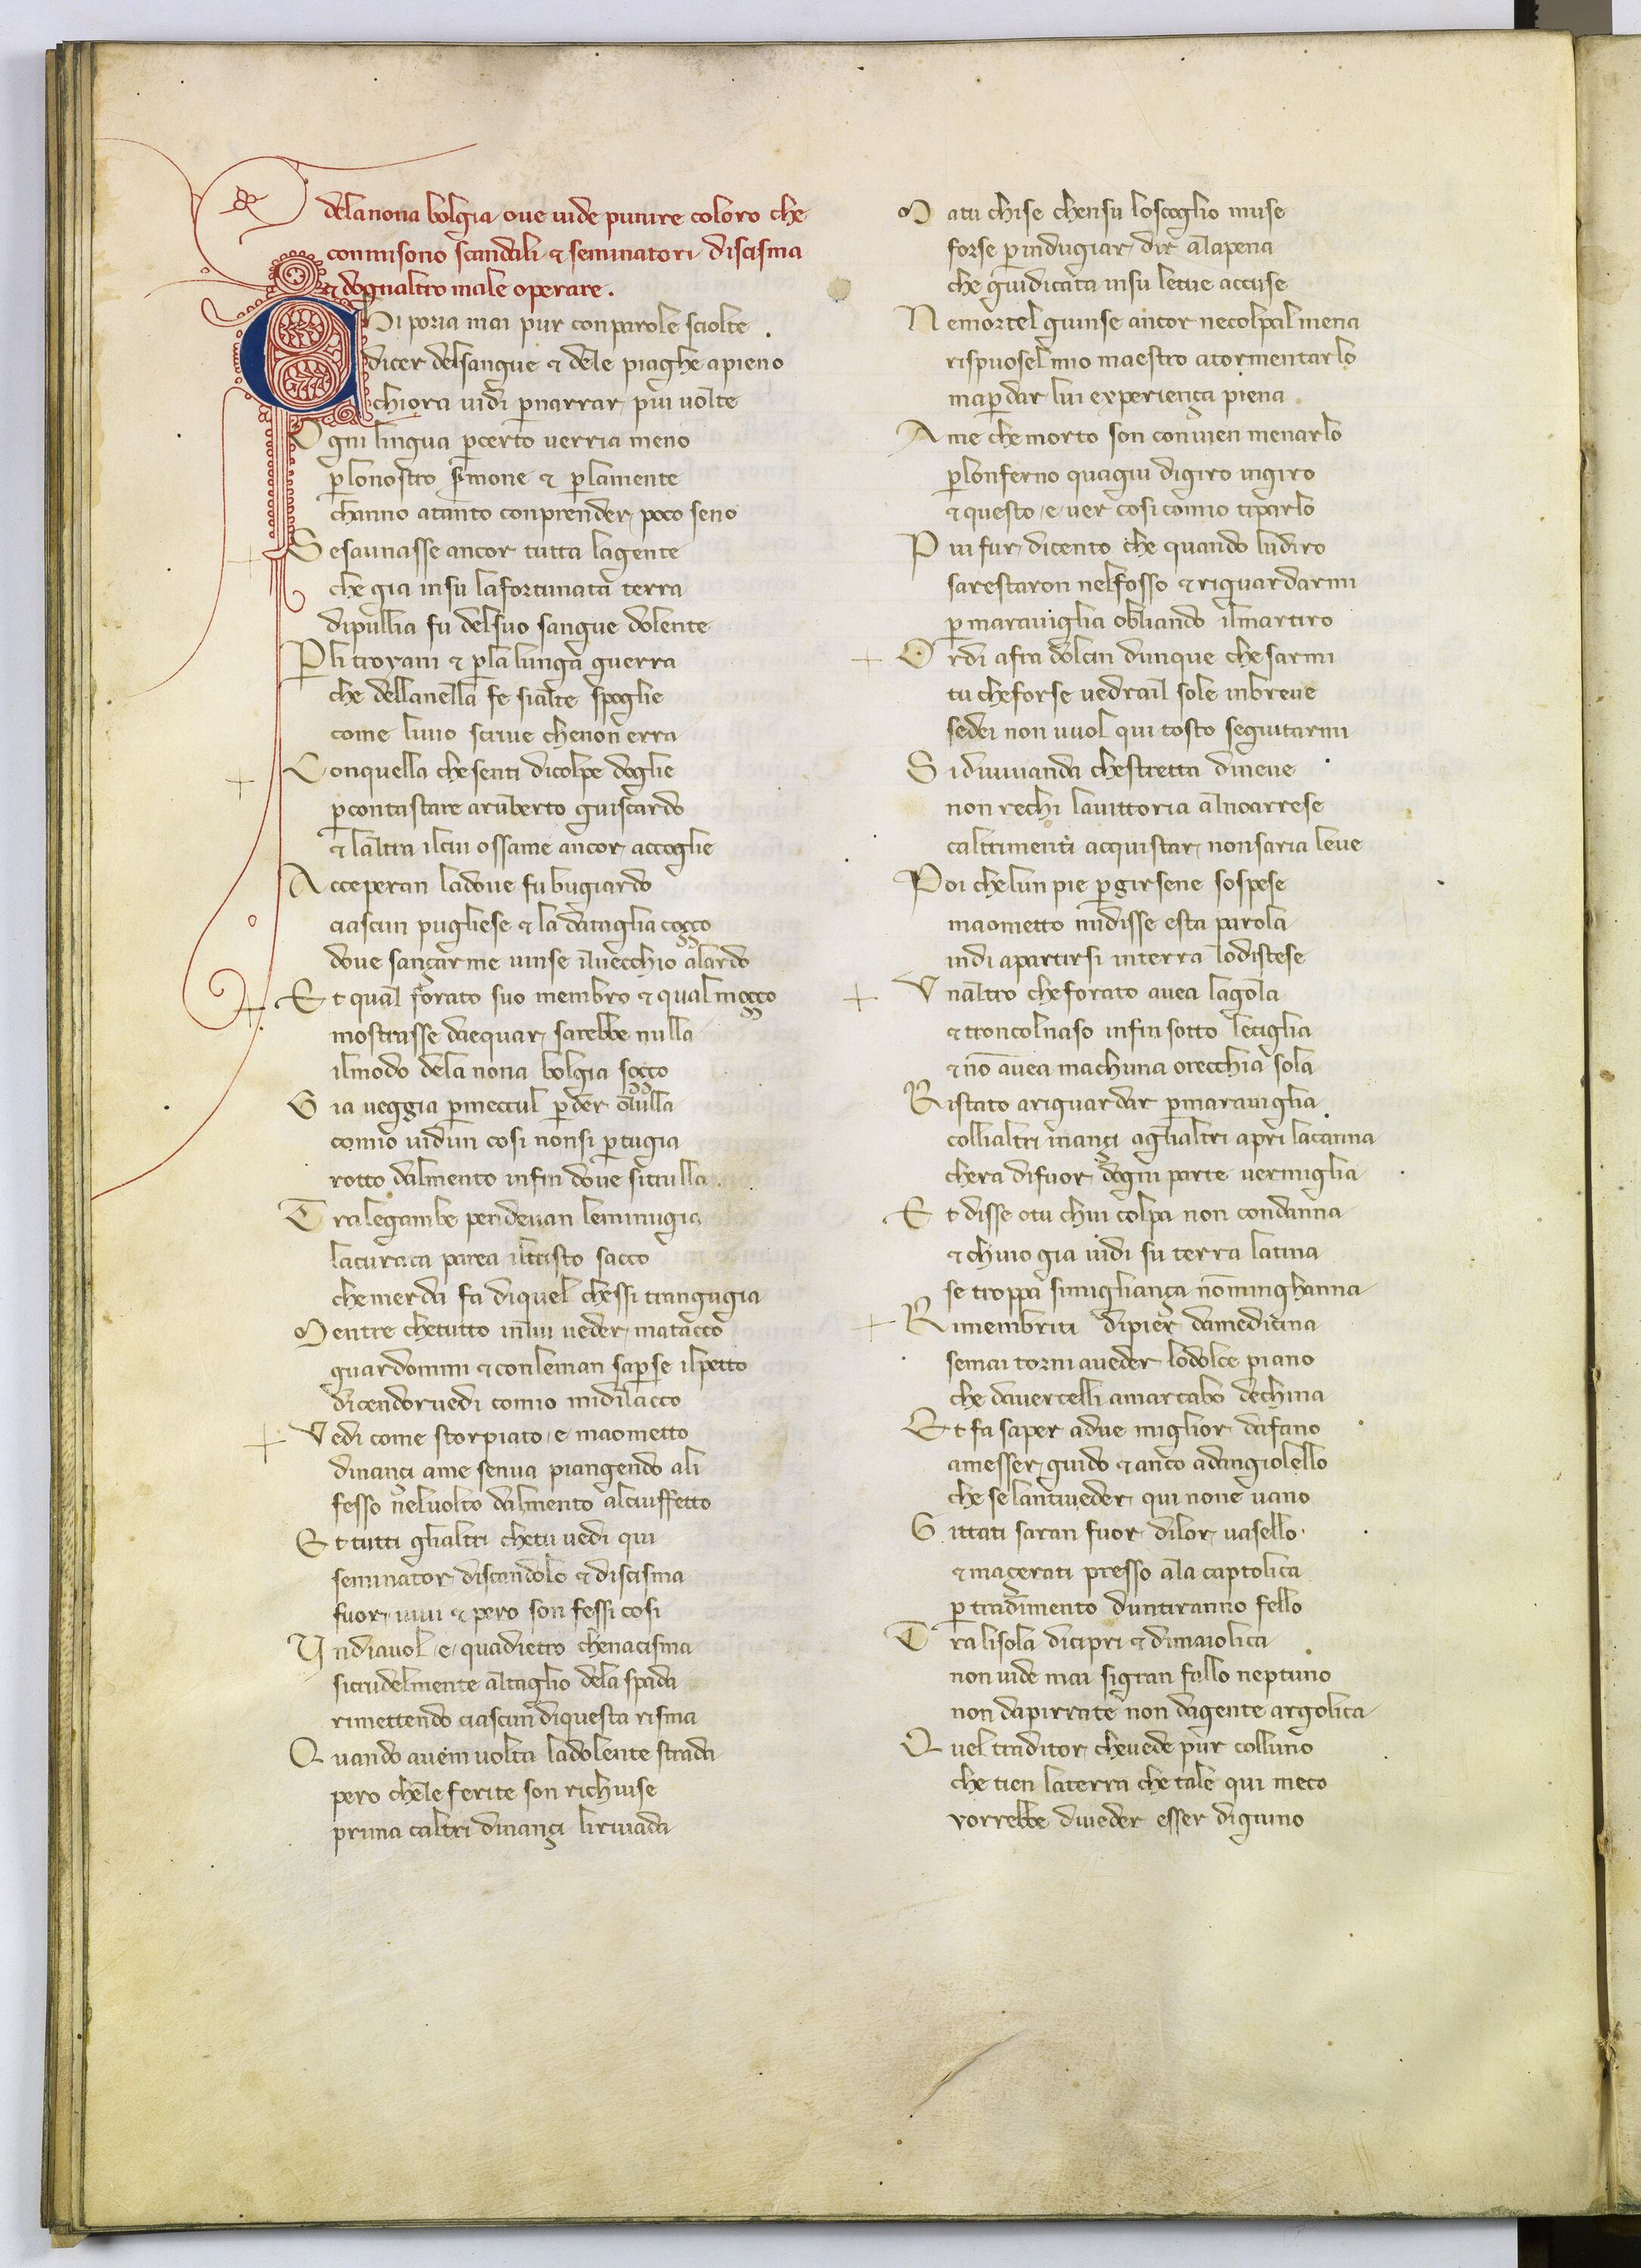 dela nona bolgia oue uide punire coloro che
conmisono scandali & seminatori discisma
& dognaltro male operare.
Chi poria mai pur conparole sciolte
dicer delsangue & dele piaghe apieno
chiora uidi pnarrar piu uolte
Ogni lingua pcerto uerria meno
plonostro smone & plamente
channo atanto conprender poco seno
Sesaunasse ancor tutta lagente
che gia insu lafortunata terra
dipullia fu delsuo sangue dolente
Pli troyani & pla lunga guerra
che dellanella fe sialte spoglie
come liuio scriue chenon erra
Conquella chesenti dicolpe doglie
pcontastare aruberto guiscardo
& laltra ilcui ossame ancor accoglie
Acceperan ladoue fu bugiardo
ciascun pugliese & la dataglia coçço
doue sançarme uinse iluecchio alardo
Et qual forato suo membro & qual moçço
mostrasse daequar sarebbe nulla
ilmodo dela nona bolgia soçço
Gia ueggia pmeççul pder olulla
comio uidiun cosi nonsi ptugia
rotto dalmento infin doue sitrulla
Tralegambe pendeuan leminugia
lacurata parea iltristo sacco
chemerda fa diquel chessi trangugia
Mentre chetutto inlui ueder matacco
guardommi & conleman sapse ilpetto
dicendoruedi comio midilacco
Vedi come storpiato e maometto
dinançi ame senua piangendo ali
fesso neluolto dalmento alciuffetto
Et tutti glialtri chetu uedi qui
seminator discandolo & discisma
fuor uiui & pero son fessi cosi
Vndiauol e quadietro chenacisma
sicrudelmente altaglio dela spada
rimettendo ciascun diquesta risma
Quando auem uolta ladolente strada
pero chele ferite son richiuse
prima caltri dinançi liriuada
Matu chise chensu loscoglio muse
forse pindugiar dir ala pena
che giudicata insu letue accuse
Nemortel giunse ancor necolpal mena
rispuosel mio maestro atormentarlo
mapdar lui experiença piena
Ame chemorto son conuien menarlo
plonferno quagiu digiro ingiro
& questo e uer cosi comio tiparlo
Piu fur dicento che quando ludiro
sarestaron nelfosso & riguardarmi
pmarauiglia obliando ilmartiro
Ordi afra dolcin dunque chesarmi
tu cheforse uedrail sole inbreue
sedei non uuol qui tosto seguitarmi
Sidiuiuanda chestretta dineue
non rechi lauittoria alnoarese
caltrimenti acquistar nonsaria leue
Poi chelun pie pgirsene sospese
maometto midisse esta parola
indi apartirsi interra lodistese
Vnaltro cheforato auea lagola
& troncolnaso infin sotto leciglia
& nō auea machuna orecchia sola
Ristato ariguardar pmarauiglia
collialtri inançi aglialtri apri lacanna
chera difuor dogni parte uermiglia
Et disse otu chui colpa non condanna
& chuio gia uidi su terra latina
se troppa simigliança nōminghanna
Rimembriti dipier damedicina
semai torni aueder lodolce piano
che dauercelli amarcabo dechina
Et fa saper adue miglior dafano
amesser guido & anco adangiolello
che selantiueder qui none uano
Gittati saran fuor dilor uasello
& maçerati presso ala captolica
p tradimento duntiranno fello
Tralisola dicipri & dimaiolica
non uide mai sigran fallo neptuno
non dapirrate non dagente argolica
Quel traditor cheuede pur colluno
che tien laterra che tale qui meco
vorrebbe diueder esser digiuno